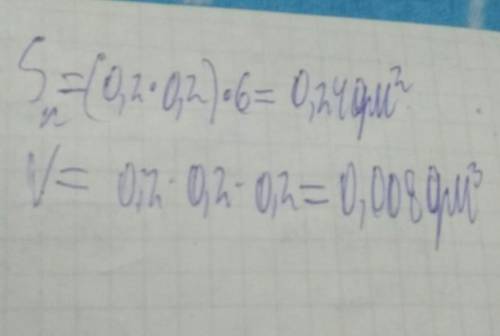 Sп=(0,2·0,2)·6=0,24дм²
V=0,2·0,2·0,2=0,008дм³